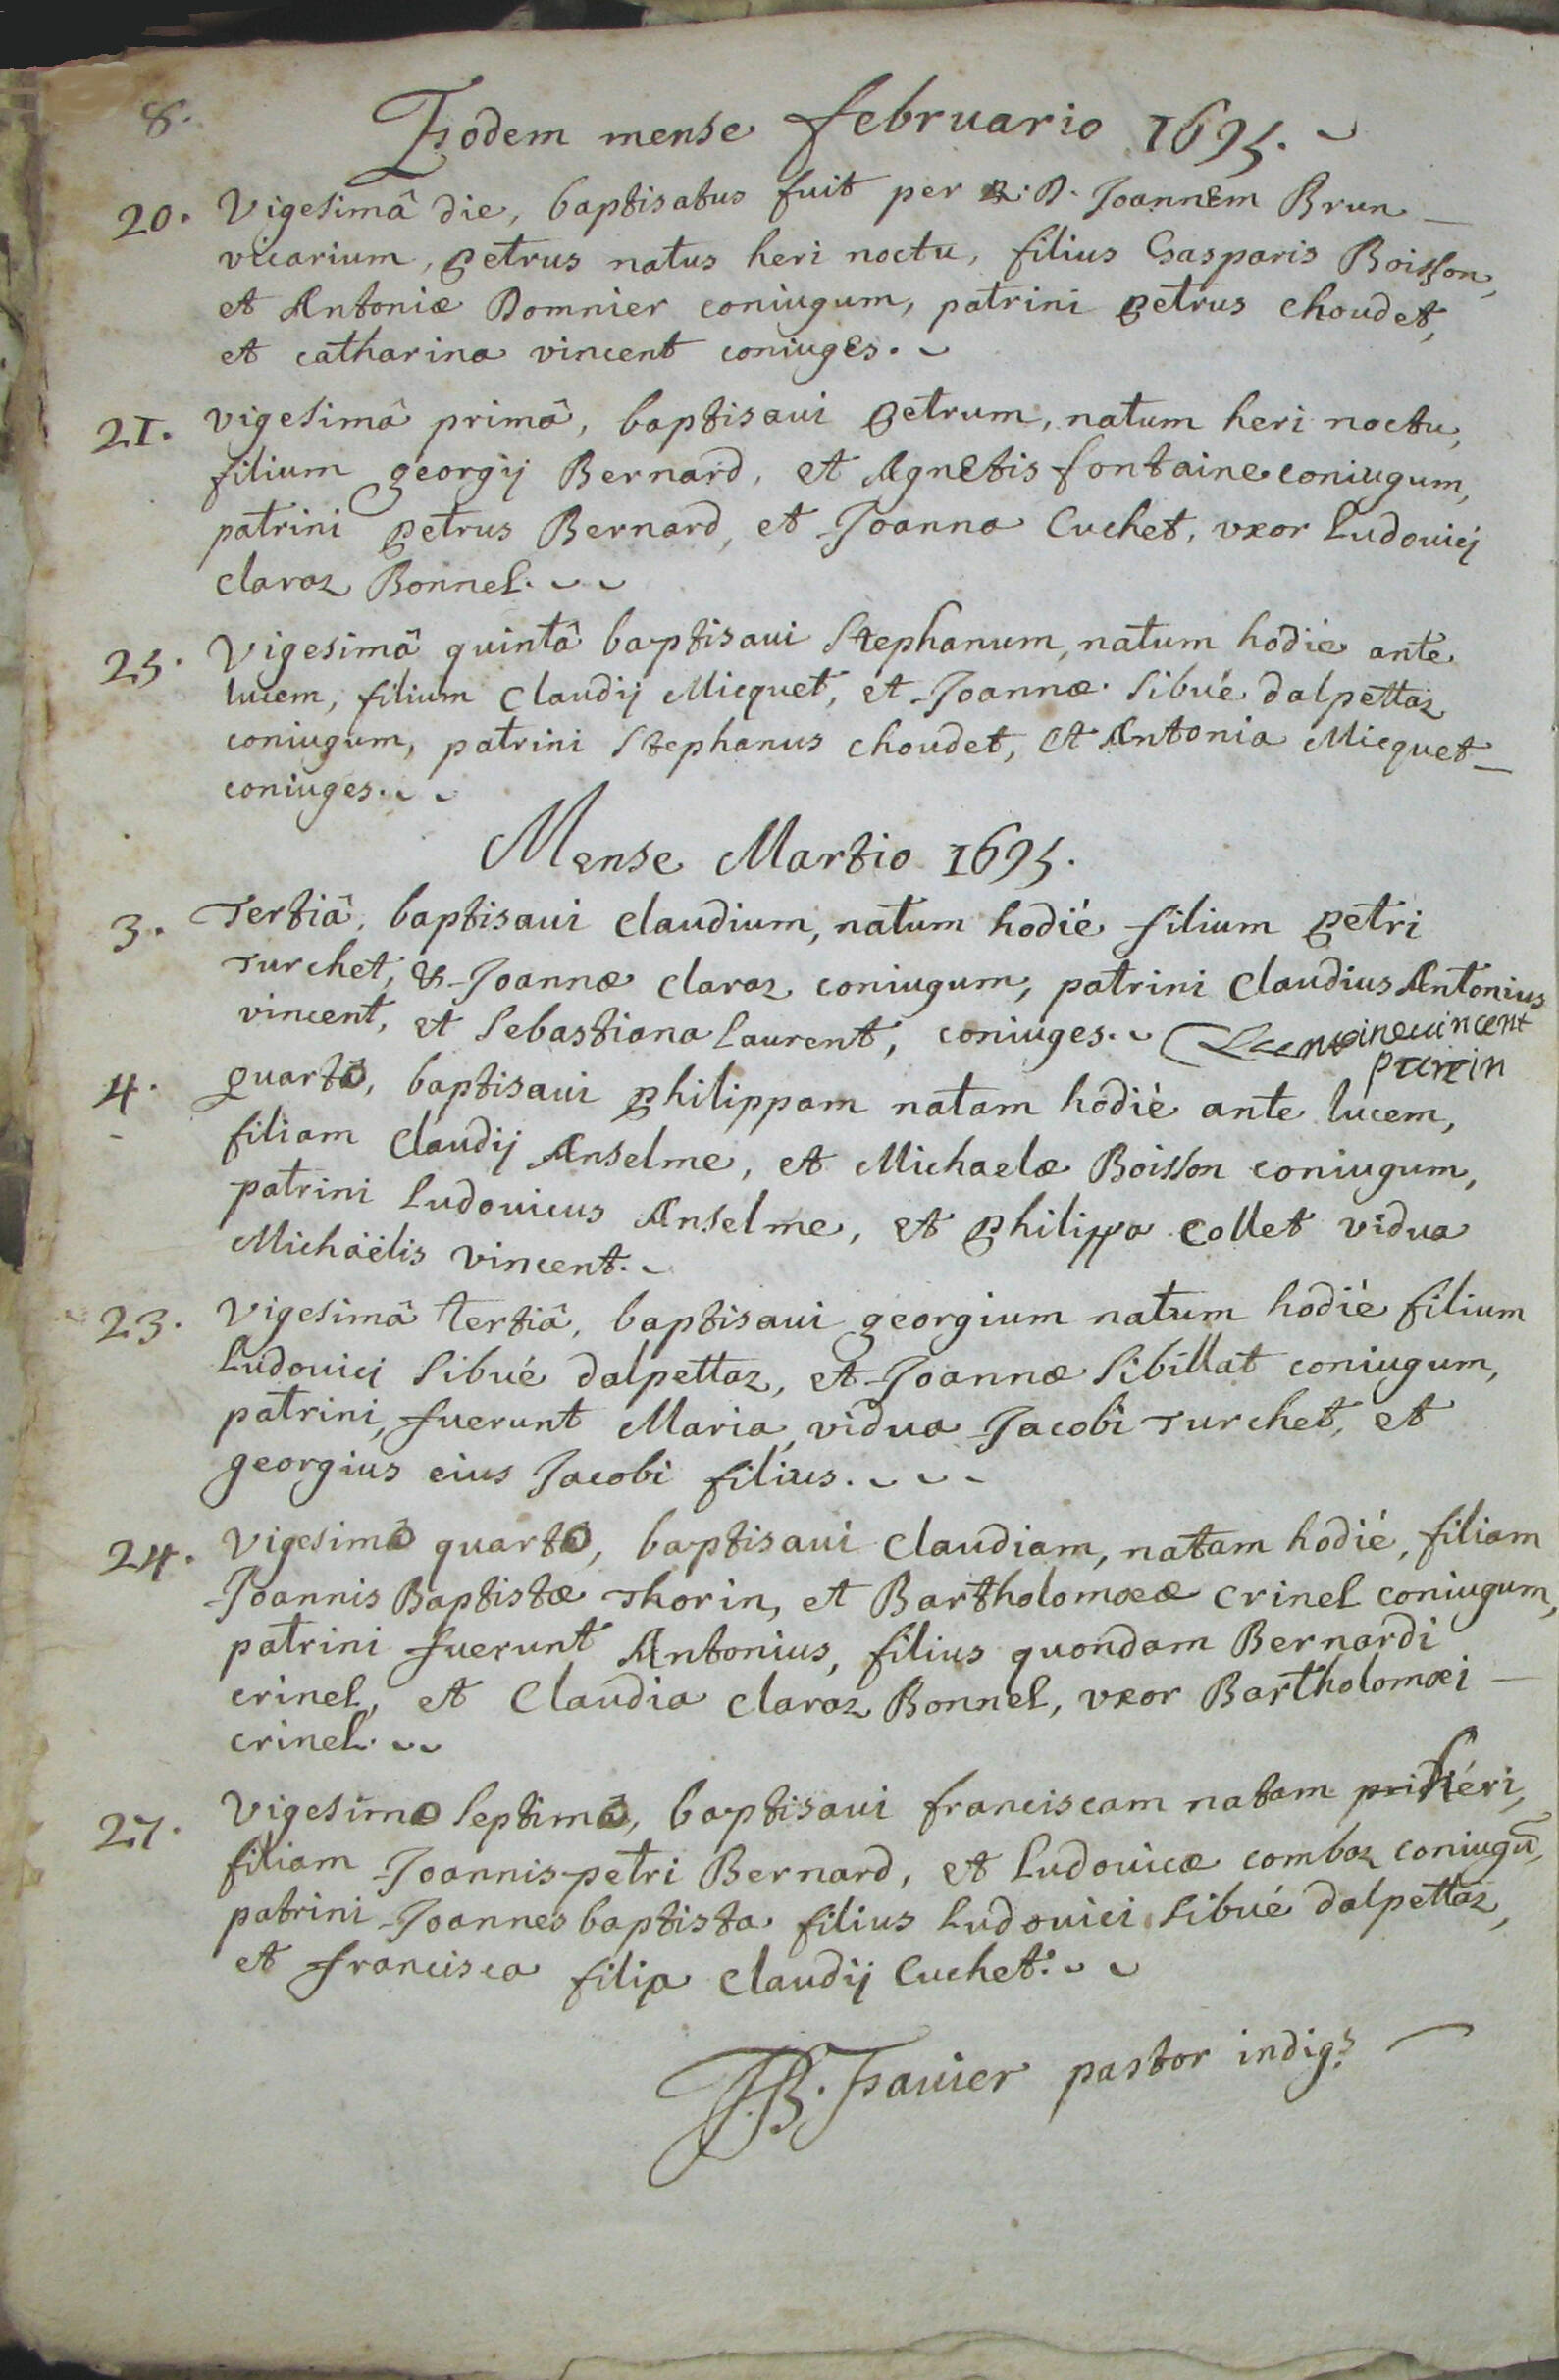 8.
Eodem mense februario 1695.
20. Vigesimâ die, baptisatus fuit per R. D. Joannem Brun
vicarium, petrus natus heri noctu, filius Gasparis Boisson,
et Antoniæ Domnier coniugum, patrini petrus choudet,
et catharina vincent coniuges.
21. vigesimâ primâ, baptisaui petrum, natum heri noctu,
filium georgij Bernard, et Agnetis fontaine coniugum,
patrini petrus Bernard, et Joanna Cuchet, vxor Ludouicj
claraz Bonnel.
25. Vigesimâ quintâ baptisaui Stephanum, natum hodie ante
lucem, filium claudij Micquet, et Joannæ Sibué dalpettaz
coniugum, patrini Stephanus choudet, et Antonia Micquet
coniuges.
Mense Martio 1695.
3. Tertiâ, baptisaui claudium, natum hodié filium petri
Turchet, & Joannæ claraz coniugum, patrini claudius Antonius
vincent, et Sebastiana Laurent, coniuges. vincent
4. quarta, baptisaui philippam natam hodiè ante lucem,
filiam claudij Anselme, et Michaelæ Boisson coniugum,
patrini Ludouicus Anselme, et philippa collet vidua
Michaëlis vincent.
23. Vigesimâ tertiâ, baptisaui georgium natum hodié filium
Ludouicj Sibué dalpettaz, et Joannæ Sibillat coniugum,
patrini, fuerunt Maria, vidua Jacobi Turchet, et
georgius eius Jacobi filius.
24. Vigesima quarta, baptisaui claudiam, natam hodié, filiam
Joannis Baptistæ Thorin, et Bartholomææ crinel coniugum,
patrini fuerunt Antonius, filius quondam Bernardi
crinel, et Claudia claraz Bonnel, vxor Bartholomæi
crinel.
27. Vigesima septima, baptisaui franciscam natam héri,
filiam Joannis petri Bernard, et Ludouicæ combaz coniugū,
patrini Joannes baptista filius Ludouici Sibué dalpettaz,
et francisca filia claudij Cuchet.
JB. Fauier pastor indigs